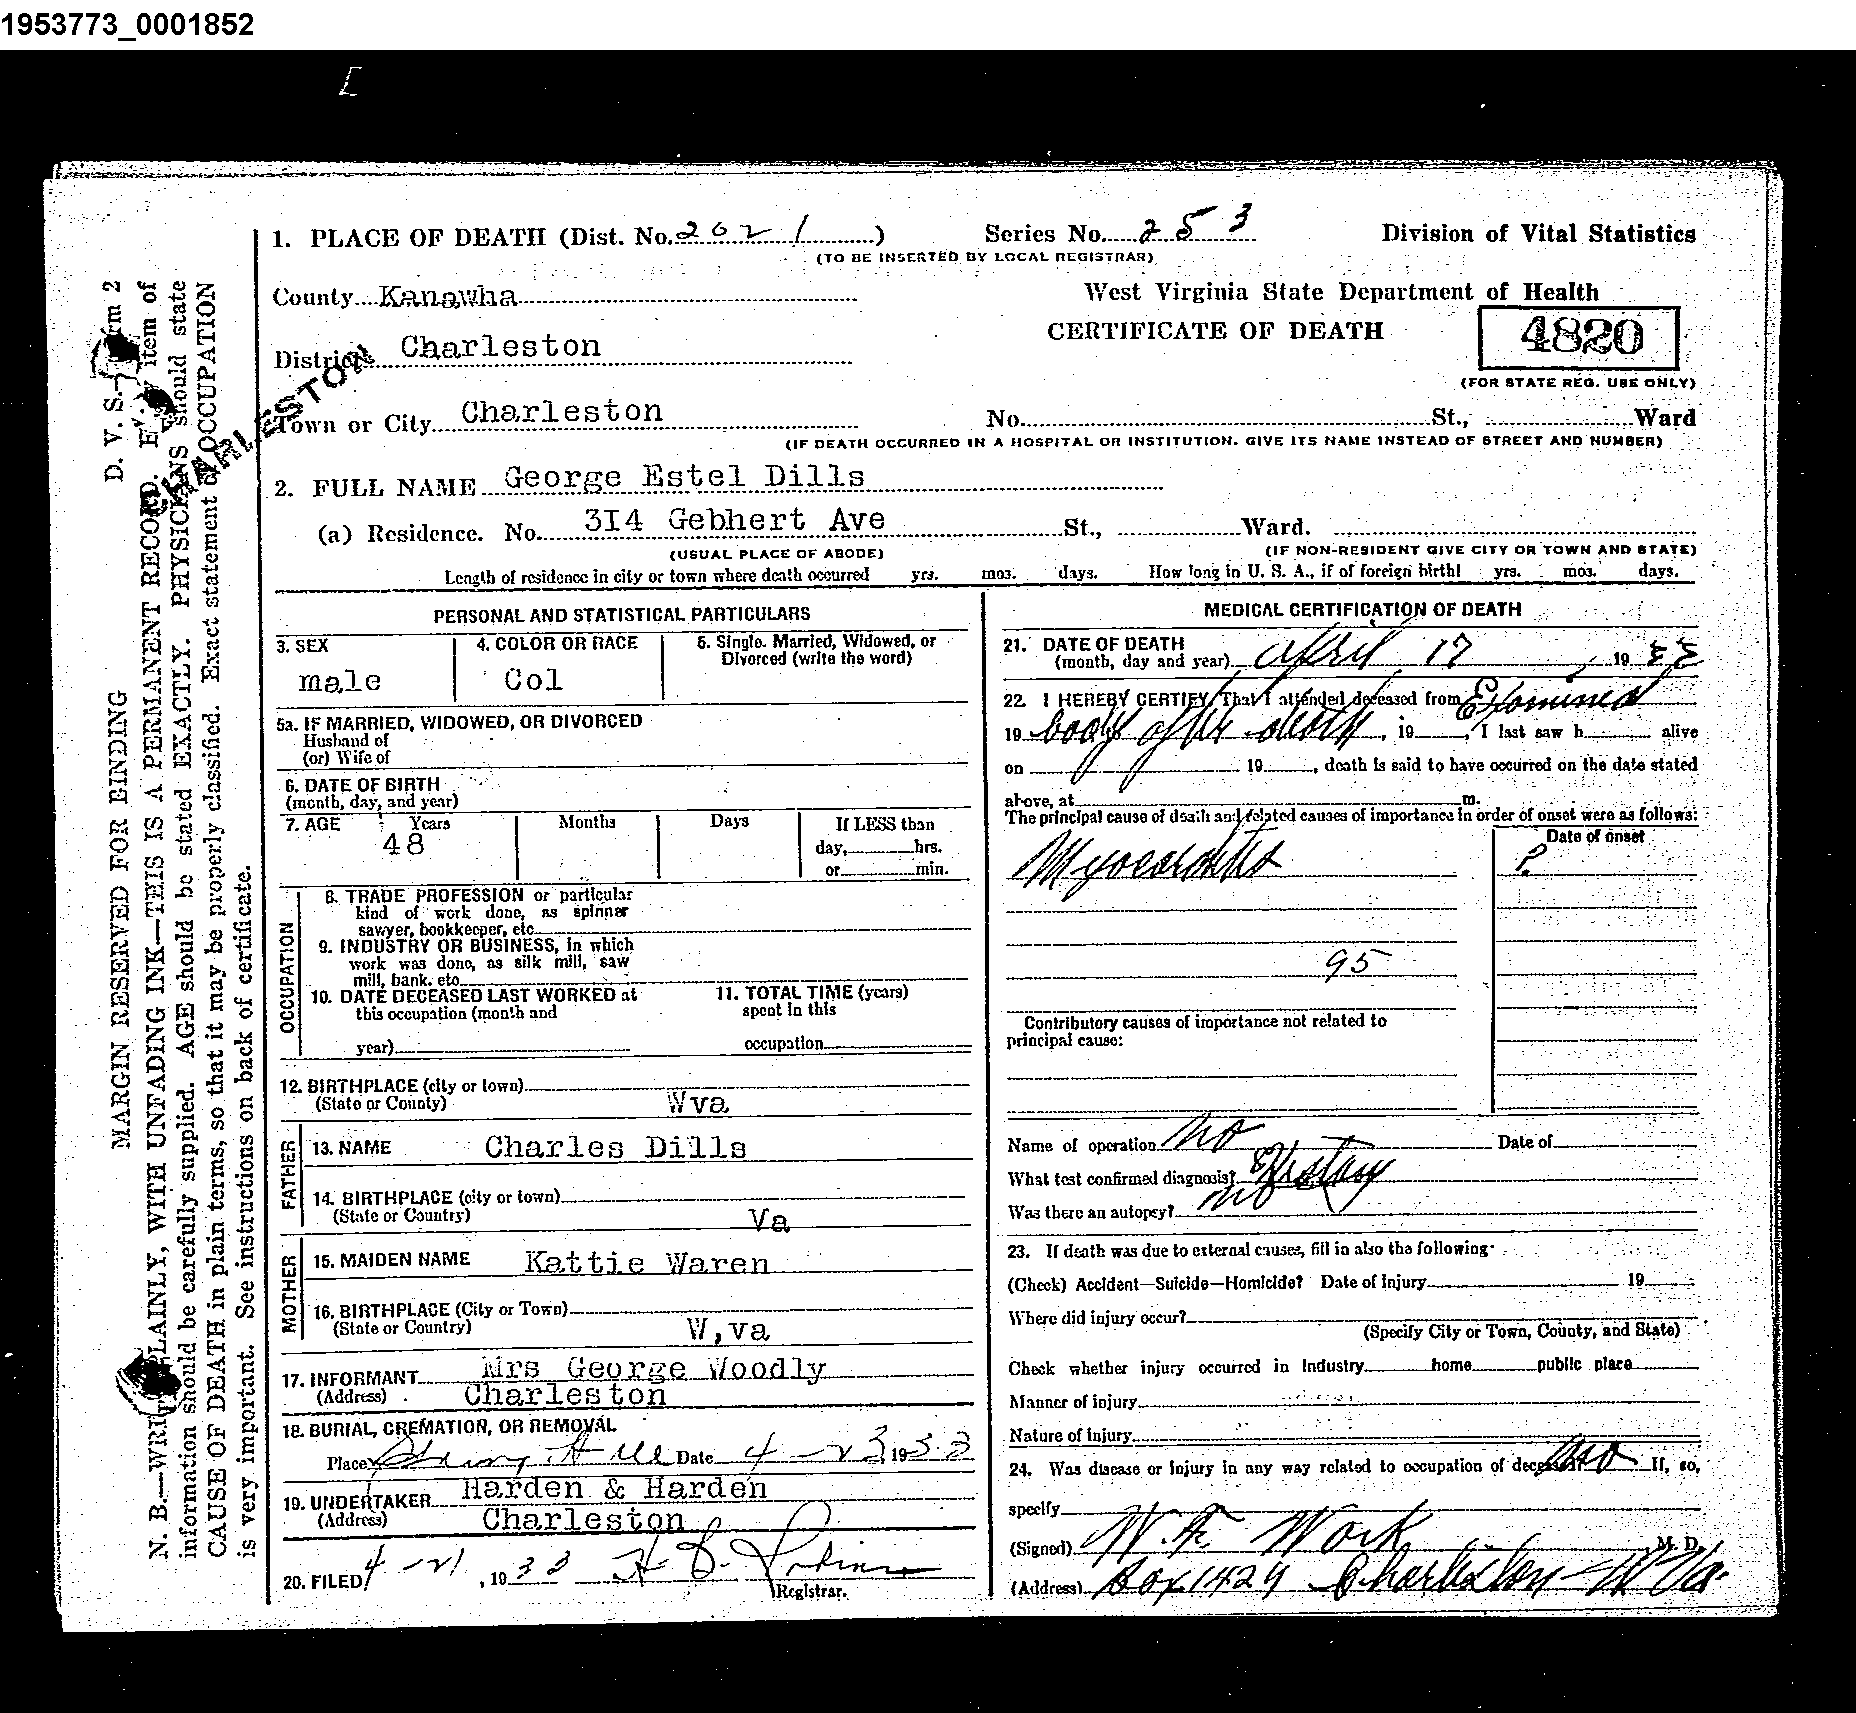 1953773_0001852
1. PLACE OF DEATH (Dist. No. 2021) Series No. 253 Division of Vital Statistics
(TO BE INSERTED BY LOCAL REGISTRAR)
County Kanawha West Virginia State Department of Health
CERTIFICATE OF DEATH 4820
District Charleston
(FOR STATE REG. USE ONLY)
CHARLESTON
Town or City Charleston No. St., Ward
(IF DEATH OCCURRED IN A HOSPITAL OR INSTITUTION, GIVE ITS NAME INSTEAD OF STREET AND NUMBER)
2. FULL NAME George Estel Dills
(a) Residence. No. 3I4 Gebhert Ave St., Ward.
(USUAL PLACE OF ABODE) (IF NON-RESIDENT GIVE CITY OR TOWN AND STATE)
Length of residence in city or town where death occurred yrs. mos. days. How long in U. S. A., if of foreign birth! yrs. mos. days.
PERSONAL AND STATISTICAL PARTICULARS
3. SEX 4. COLOR OR RACE 5. Single. Married, Widowed, or
Divorced (write the word)
male Col
5a. IF MARRIED, WIDOWED, OR DIVORCED
Husband of
(or) Wife of
6. DATE OF BIRTH
(month, day, and year)
7. AGE Years Months Days If LESS than
48 day, hrs.
or min.
OCCUPATION
8. TRADE PROFESSION or particular
kind of work done, as spinner
sawyer, bookkeeper, etc
9. INDUSTRY OR BUSINESS, in which
work was done, as silk mill, saw
mill, bank. etc.
10. DATE DECEASED LAST WORKED at 11. TOTAL TIME (years)
this occupation (month and spent in this
year) occupation
12. BIRTHPLACE (city or town)
(State or County) Wva
FATHER
13. NAME Charles Dills
14. BIRTHPLACE (city or town)
(State or Country) Va
MOTHER
15. MAIDEN NAME Kattie Waren
16. BIRTHPLACE (City or Town)
(State or Country) W,va
17. INFORMANT Mrs George Woodly
(Address) Charleston
18. BURIAL, CREMATION, OR REMOVAL
Place Hill Date 4-23 1933
19. UNDERTAKER Harden & Harden
(Address) Charleston
20. FILED 4-21, 1933 H
Registrar.
MEDICAL CERTIFICATION OF DEATH
21. DATE OF DEATH
(month, day and year) April 17, 1933
22. I HEREBY CERTIFY, That I attended deceased from Examined
19 body after death, 19, I last saw h alive
on 19, death is said to have occurred on the date stated
above, at m.
The principal cause of death and related causes of importance in order of onset were as follows:
Date of onset
Myocarditis ?
95
Contributory causes of importance not related to
principal cause:
Name of operation no Date of
What test confirmed diagnosis? History
Was there an autopsy? no
23. If death was due to external causes, fill in also the following
(Check) Accident—Suicide—Homicide? Date of injury 19
Where did injury occur?
(Specify City or Town, County, and State)
Check whether injury occurred in Industry home public place
Manner of injury
Nature of injury
24. Was disease or injury in any way related to occupation of deceased? no If, so,
specify
(Signed) W. F. Work M. D.
(Address) Box 1429 Charleston W Va.
D. V. S.— rm 2
MARGIN RESERVED FOR BINDING
N. B.—WRITE PLAINLY, WITH UNFADING INK—THIS IS A PERMANENT RECORD. Every item of
information should be carefully supplied. AGE should be stated EXACTLY. PHYSICIANS should state
CAUSE OF DEATH in plain terms, so that it may be properly classified. Exact statement of OCCUPATION
is very important. See instructions on back of certificate.